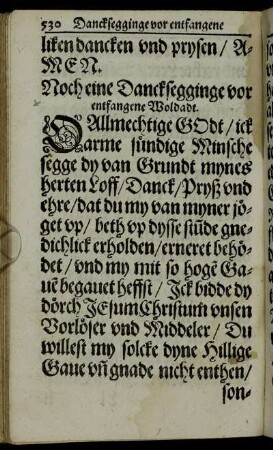 530 Dancksegginge vor entfangene
liken dancken vnd prysen / A-
MEN.
Noch eine Dancksegginge vor
entfangene Woldadt.
O Allmechtige GOdt / ick
arme sündige Minsche
segge dy van Grundt mynes
herten Loff / Danck / Pryß vnd
ehre / dat du my van myner jö-
get vp / beth vp dysse stũde gne-
dichlick erholden / erneret behö-
det / vnd my mit so hogẽ Ga-
uẽ begauet heffst / Jck bidde dy
dörch JEsum Christum vnsen
Vorlöser vnd Middeler / Du
willest my solcke dyne Hillige
Gaue vñ gnade nicht enthen /
son-